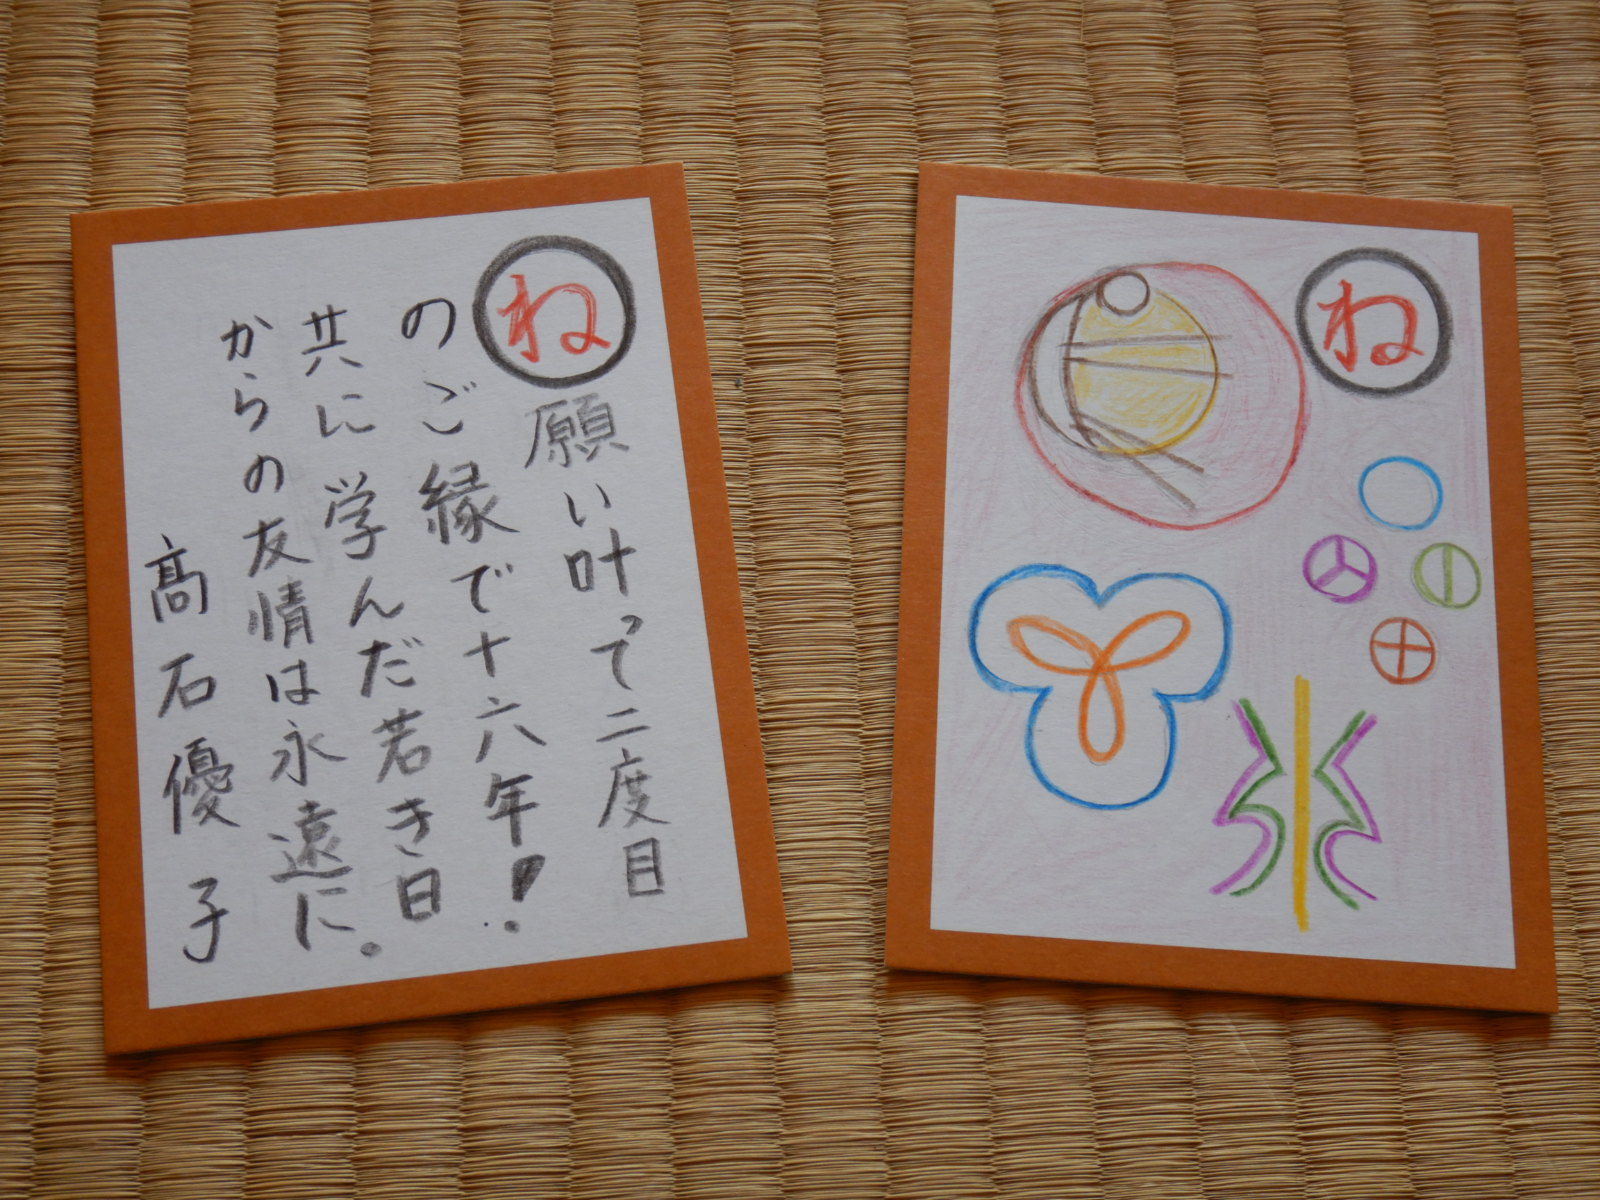 ね
願い叶って二度目
のご縁で十六年!
共に学んだ若き日
からの友情は永遠に。
髙石優子
ね